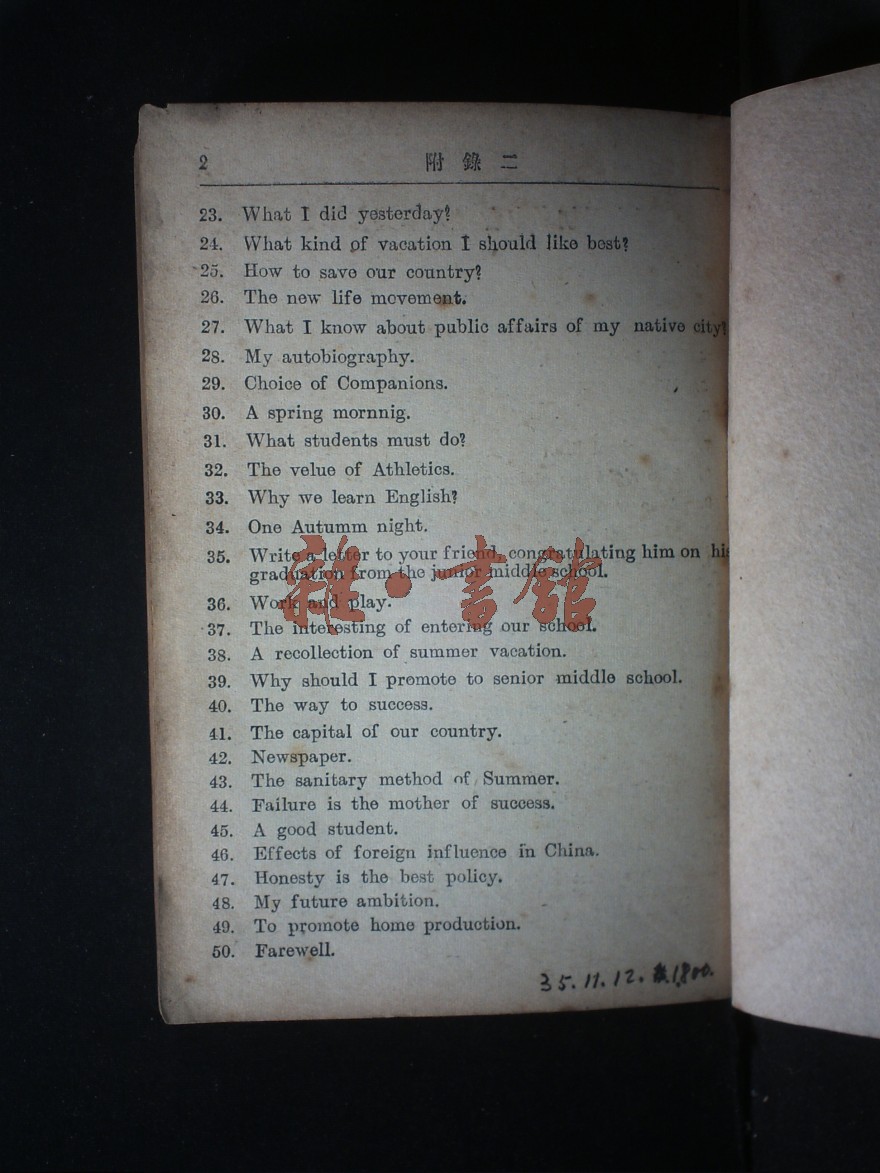 2 附錄二
23. What I did yesterday?
24. What kind of vacation I should like best?
25. How to save our country?
26. The new life movement.
27. What I know about public affairs of my native city?
28. My autobiography.
29. Choice of Companions.
30. A spring mornnig.
31. What students must do?
32. The velue of Athletics.
33. Why we learn English?
34. One Autumm night.
35. Write a letter to your friend, congratulating him on his
graduation from the junior middle school.
36. Work and play.
37. The interesting of entering our school.
38. A recollection of summer vacation.
39. Why should I promote to senior middle school.
40. The way to success.
41. The capital of our country.
42. Newspaper.
43. The sanitary method of Summer.
44. Failure is the mother of success.
45. A good student.
46. Effects of foreign influence in China.
47. Honesty is the best policy.
48. My future ambition.
49. To promote home production.
50. Farewell.
35.11.12. 1,800.
雜·書館